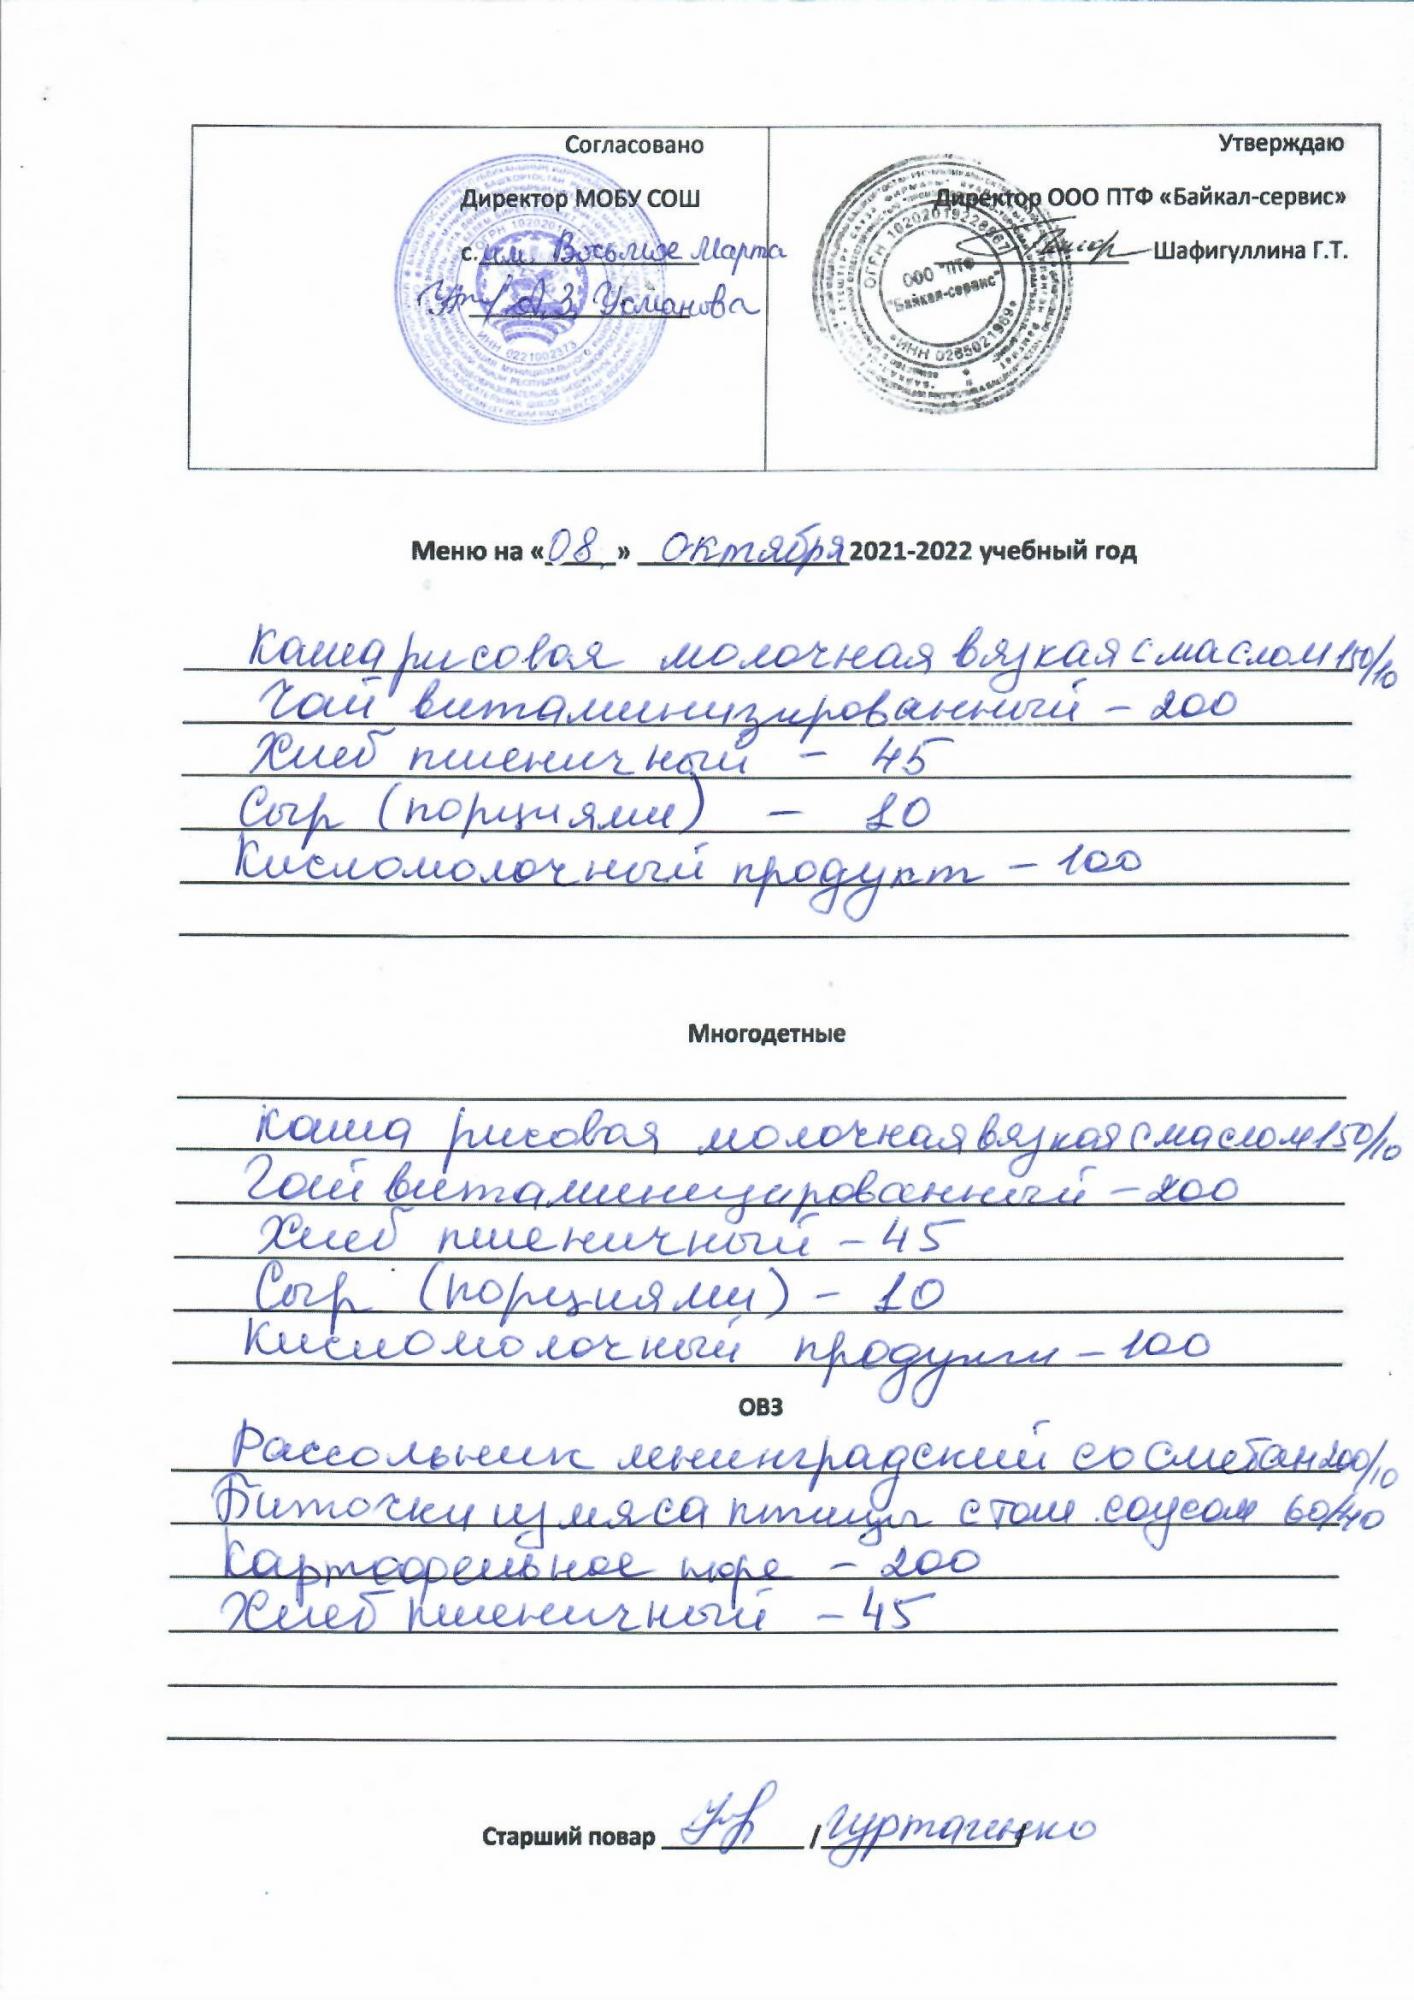 Согласовано
Директор МОБУ СОШ
с. им. Восьмое Марта
А.З. Усманова
ИНН 0221002373
Утверждаю
Директор ООО ПТФ «Байкал-сервис»
Шафигуллина Г.Т.
ООО "ПТФ
"Байкал-сервис"
ИНН 0265021969
Меню на «08» октября 2021-2022 учебный год
Каша рисовая молочная вязкая с маслом 150/10
Чай витаминизированный - 200
Хлеб пшеничный - 45
Сыр (порциями) - 10
Кисломолочный продукт - 100
Многодетные
Каша рисовая молочная вязкая с маслом 150/10
Чай витаминицированный - 200
Хлеб пшеничный - 45
Сыр (порциями) - 10
Кисломолочный - 100
ОВЗ
Рассольник ленинградский со сметан 200/10
Биточки из мяса птицы с том. соусом 60/40
Картофельное пюре - 200
Хлеб пшеничный - 45
Старший повар / /